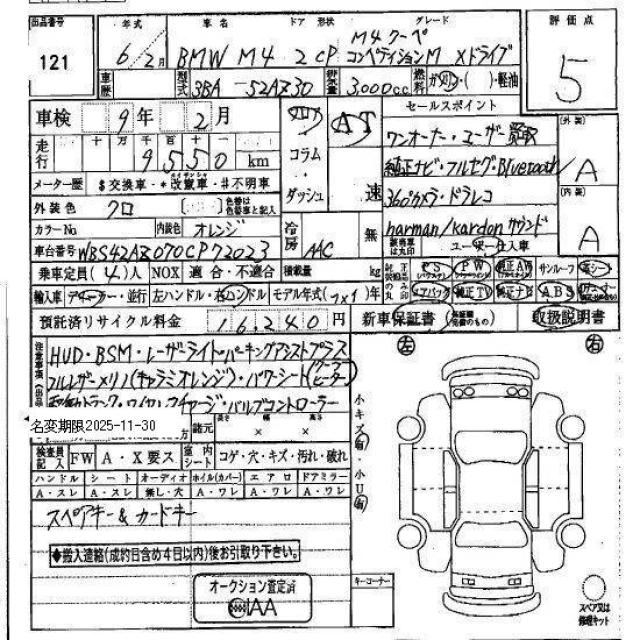 出品番号 年式 車名 ドア 形状 グレード 評価点
M4 クーペ
121 6/2月 BMW M4 2 CP コンペティションM Xドライブ 5
車歴 型式 3BA-52AZ30 排気量 3,000cc 燃料 ガソリン・( )・軽油
車検 9年 2月 フロア AT セールスポイント
ワンオーナー・ユーザー買取
走行 十 万 千 百 十 一
9550 km
コラム
純正ナビ・フルセグ・Bluetooth
外装 A
メーター歴 $交換車・*改竄車・#不明車
ダッシュ 速 360°カメラ・ドラレコ 内装
外装色 クロ 色替は色替車と記入
カラーNo. 内装色 オレンジ 冷房 AAC 無 harman/kardonサウンド A
車台番号 WBS42AZ070CP72023 該当車は丸印 ユーザー仕入車
乗車定員(4)人 NOX 適合・不適合 積載量 kg PS PW 純正AW サンルーフ 革シート
輸入車 ディーラー・並行 左ハンドル・右ハンドル モデル年式( )年 のみ丸印 エアバッグ 純正TV 純正ナビ ABS
預託済リサイクル料金 16,240円 新車保証書 取扱説明書
注意事項 HUD・BSM・レーザーライト・パーキングアシストプラス 左 右
フルレザーメリノ(キャラミオレンジ)・パワーシート(クーラー ヒーター)
電動トランク・ワイヤレスチャージ・バルブコントローラー
名変期限2025-11-30 諸元 長さ 幅 高さ
× ×
小キズ有
検査員記入 FW A・X要ス 室内シート コゲ・穴・キズ・汚れ・破れ
小U有
ハンドル シート オーディオ ホイル(カバー) エアロ ドアミラー
A・スレ A・スレ 無し・穴 A・ワレ A・ワレ A・ワレ
スペアキー&カードキー
◆搬入連絡(成約日含め4日以内)後お引取り下さい。
オークション査定済
IAA
キーコーナー
スペア又は
修理キット